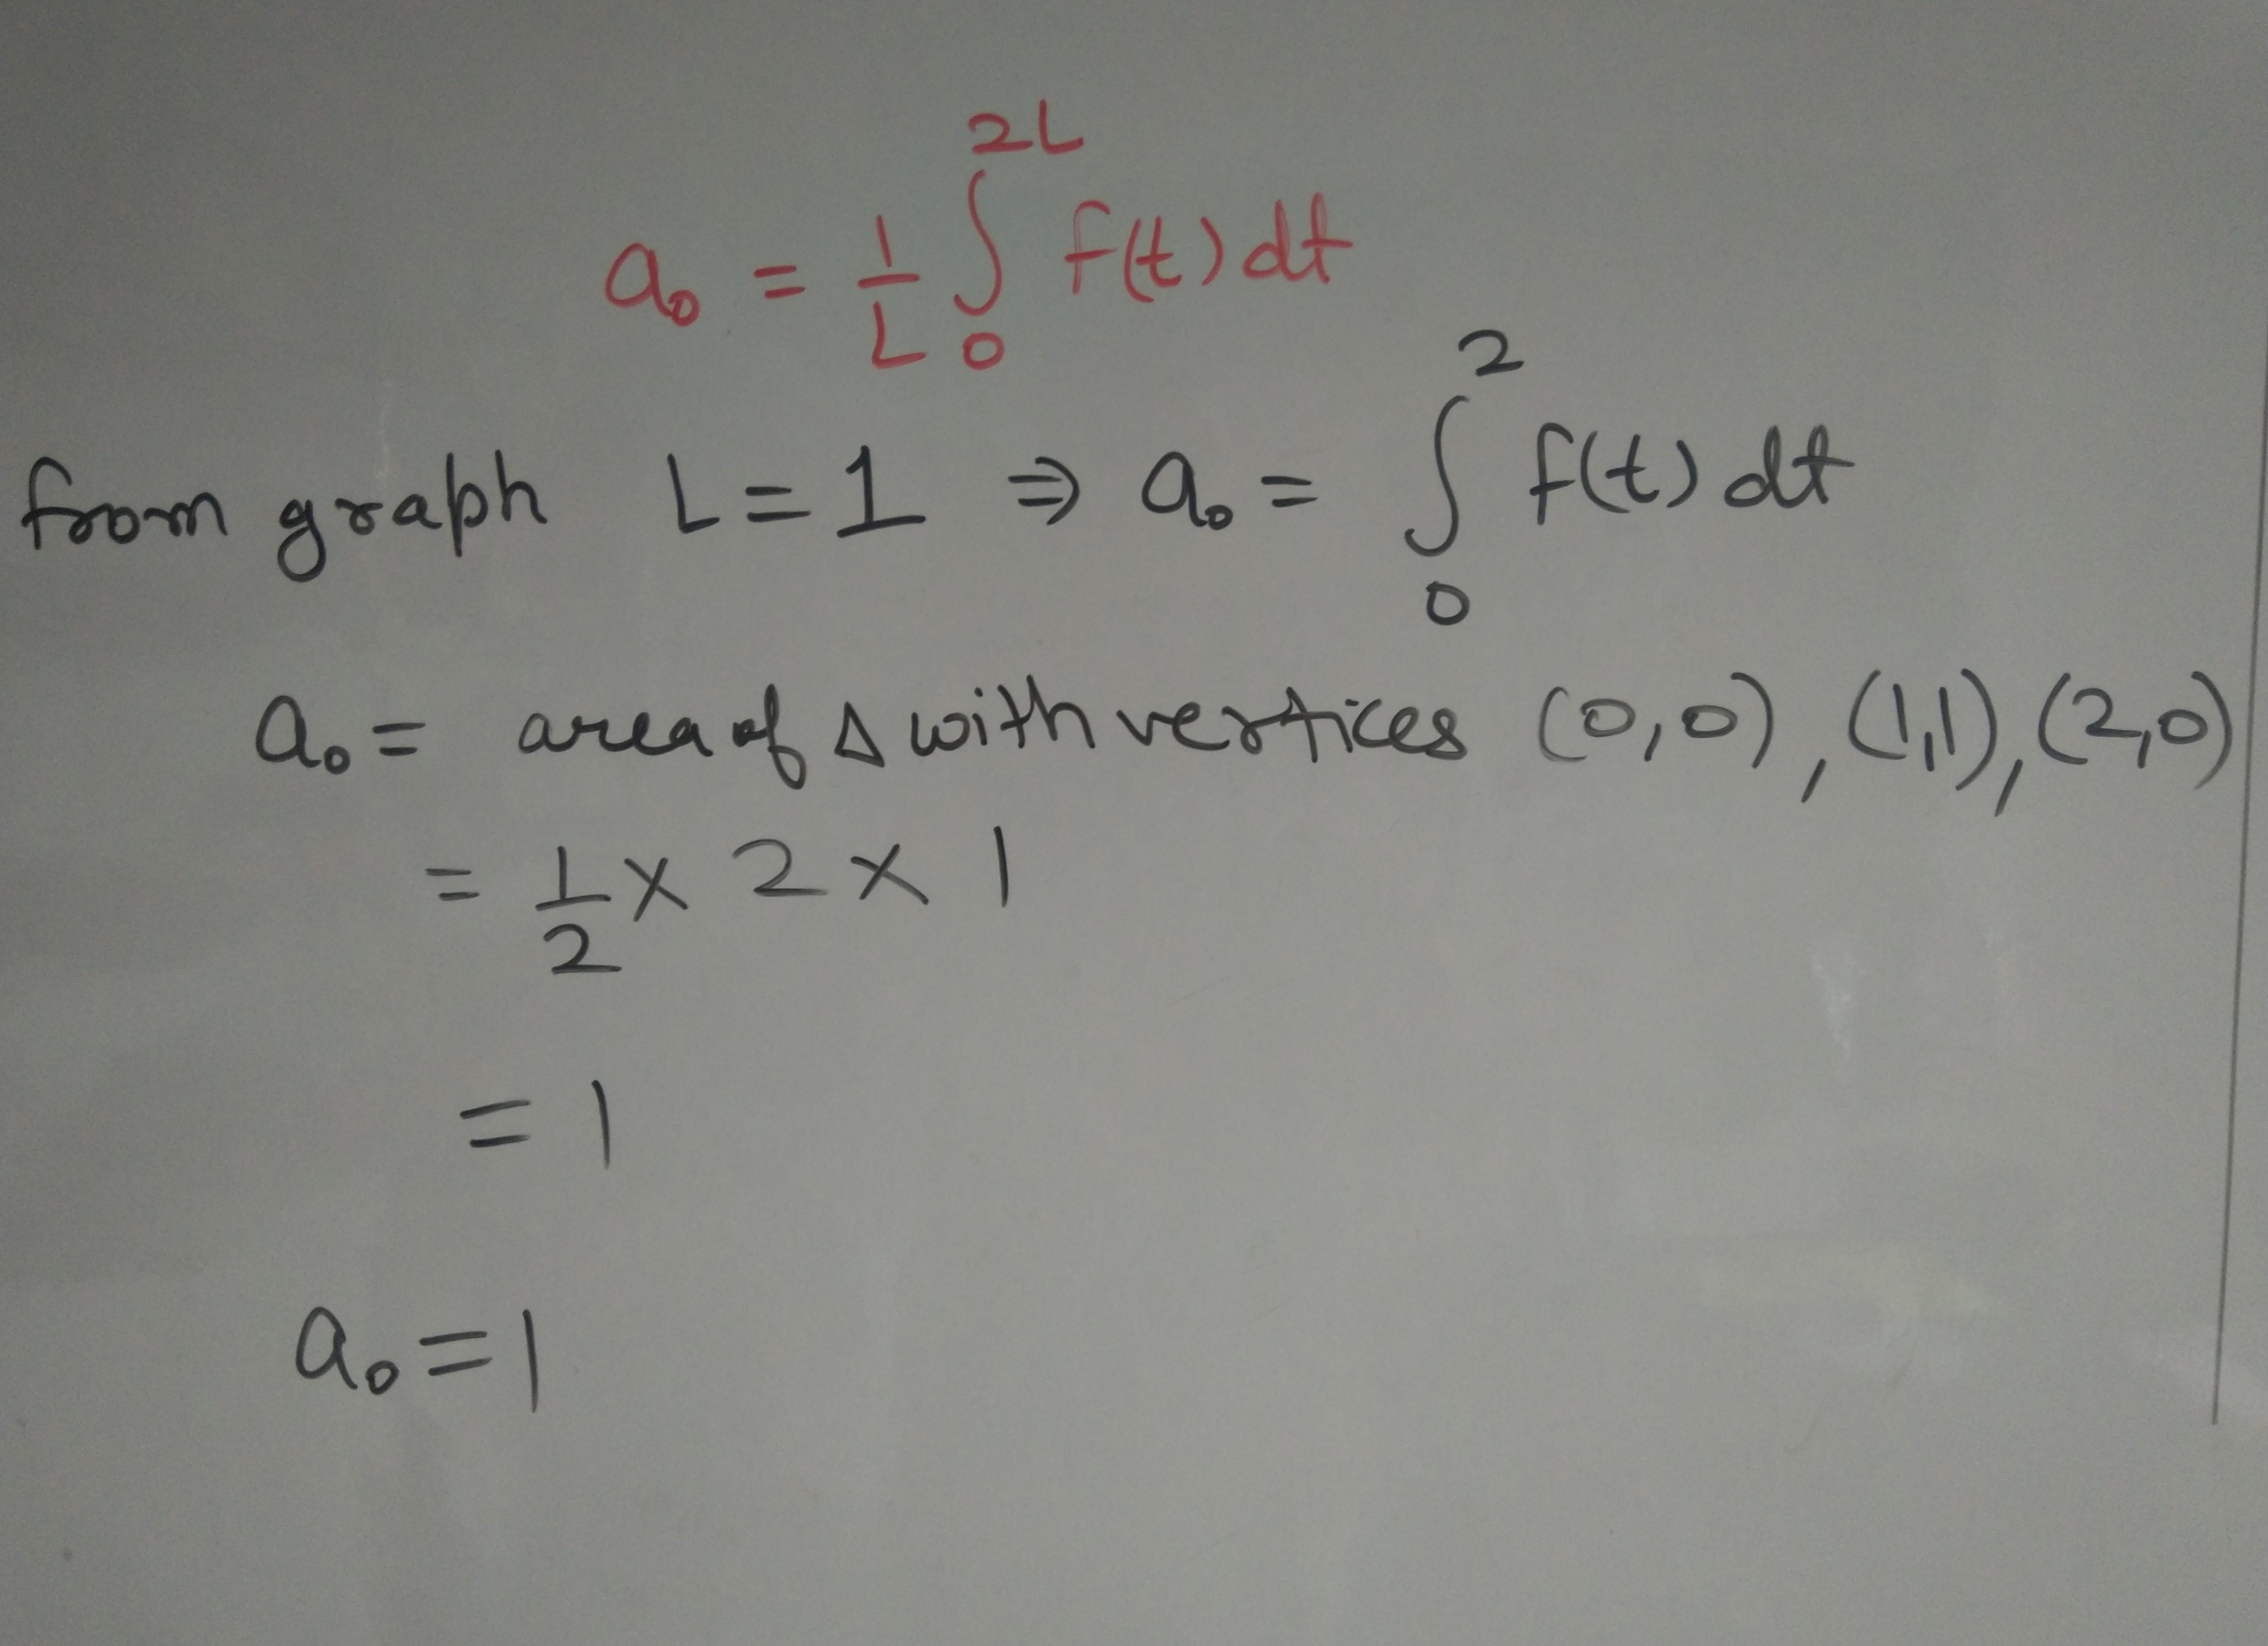 a₀ = 1/L ∫₀²ᴸ f(t) dt
from graph L = 1 ⇒ a₀ = ∫₀² f(t) dt
a₀ = area of Δ with vertices (0,0), (1,1), (2,0)
= 1/2 × 2 × 1
= 1
a₀ = 1